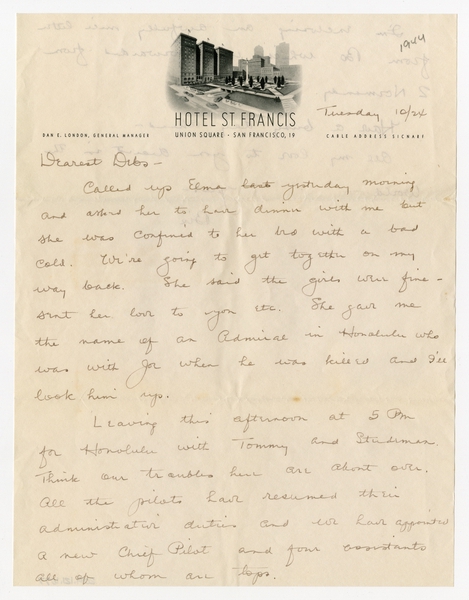 1944
HOTEL ST. FRANCIS
Tuesday 10/24
DAN E. LONDON, GENERAL MANAGER UNION SQUARE · SAN FRANCISCO, 19 CABLE ADDRESS SICNARF
Dearest Debs-
Called up Elma last yesterday morning
and asked her to have dinner with me but
she was confined to her bed with a bad
cold. We're going to get together on my
way back. She said the girls were fine-
sent her love to you etc. She gave me
the name of an Admiral in Honolulu who
was with Joe when he was killed and I'll
look him up.
Leaving this afternoon at 5 PM
for Honolulu with Tommy and
Think our troubles here are about over.
All the pilots have resumed their
administrative duties and we have appointed
a new Chief Pilot and four assistants
all of whom are tops.